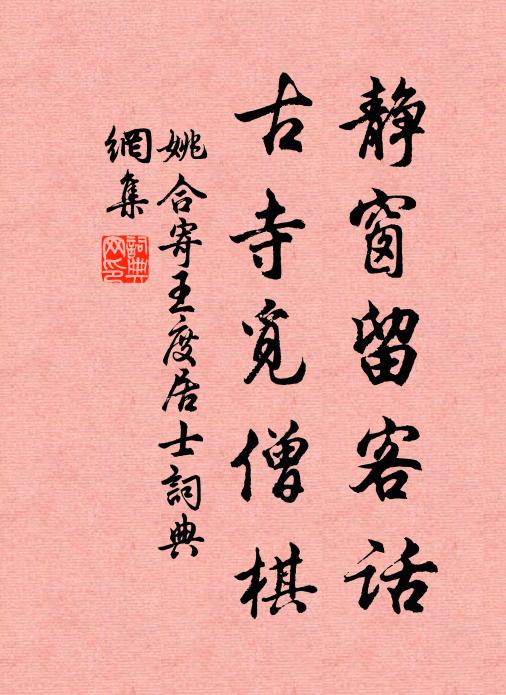 静窗留客话
古寺觅僧棋
姚合寄王度居士詞典
網集
詞典
网印